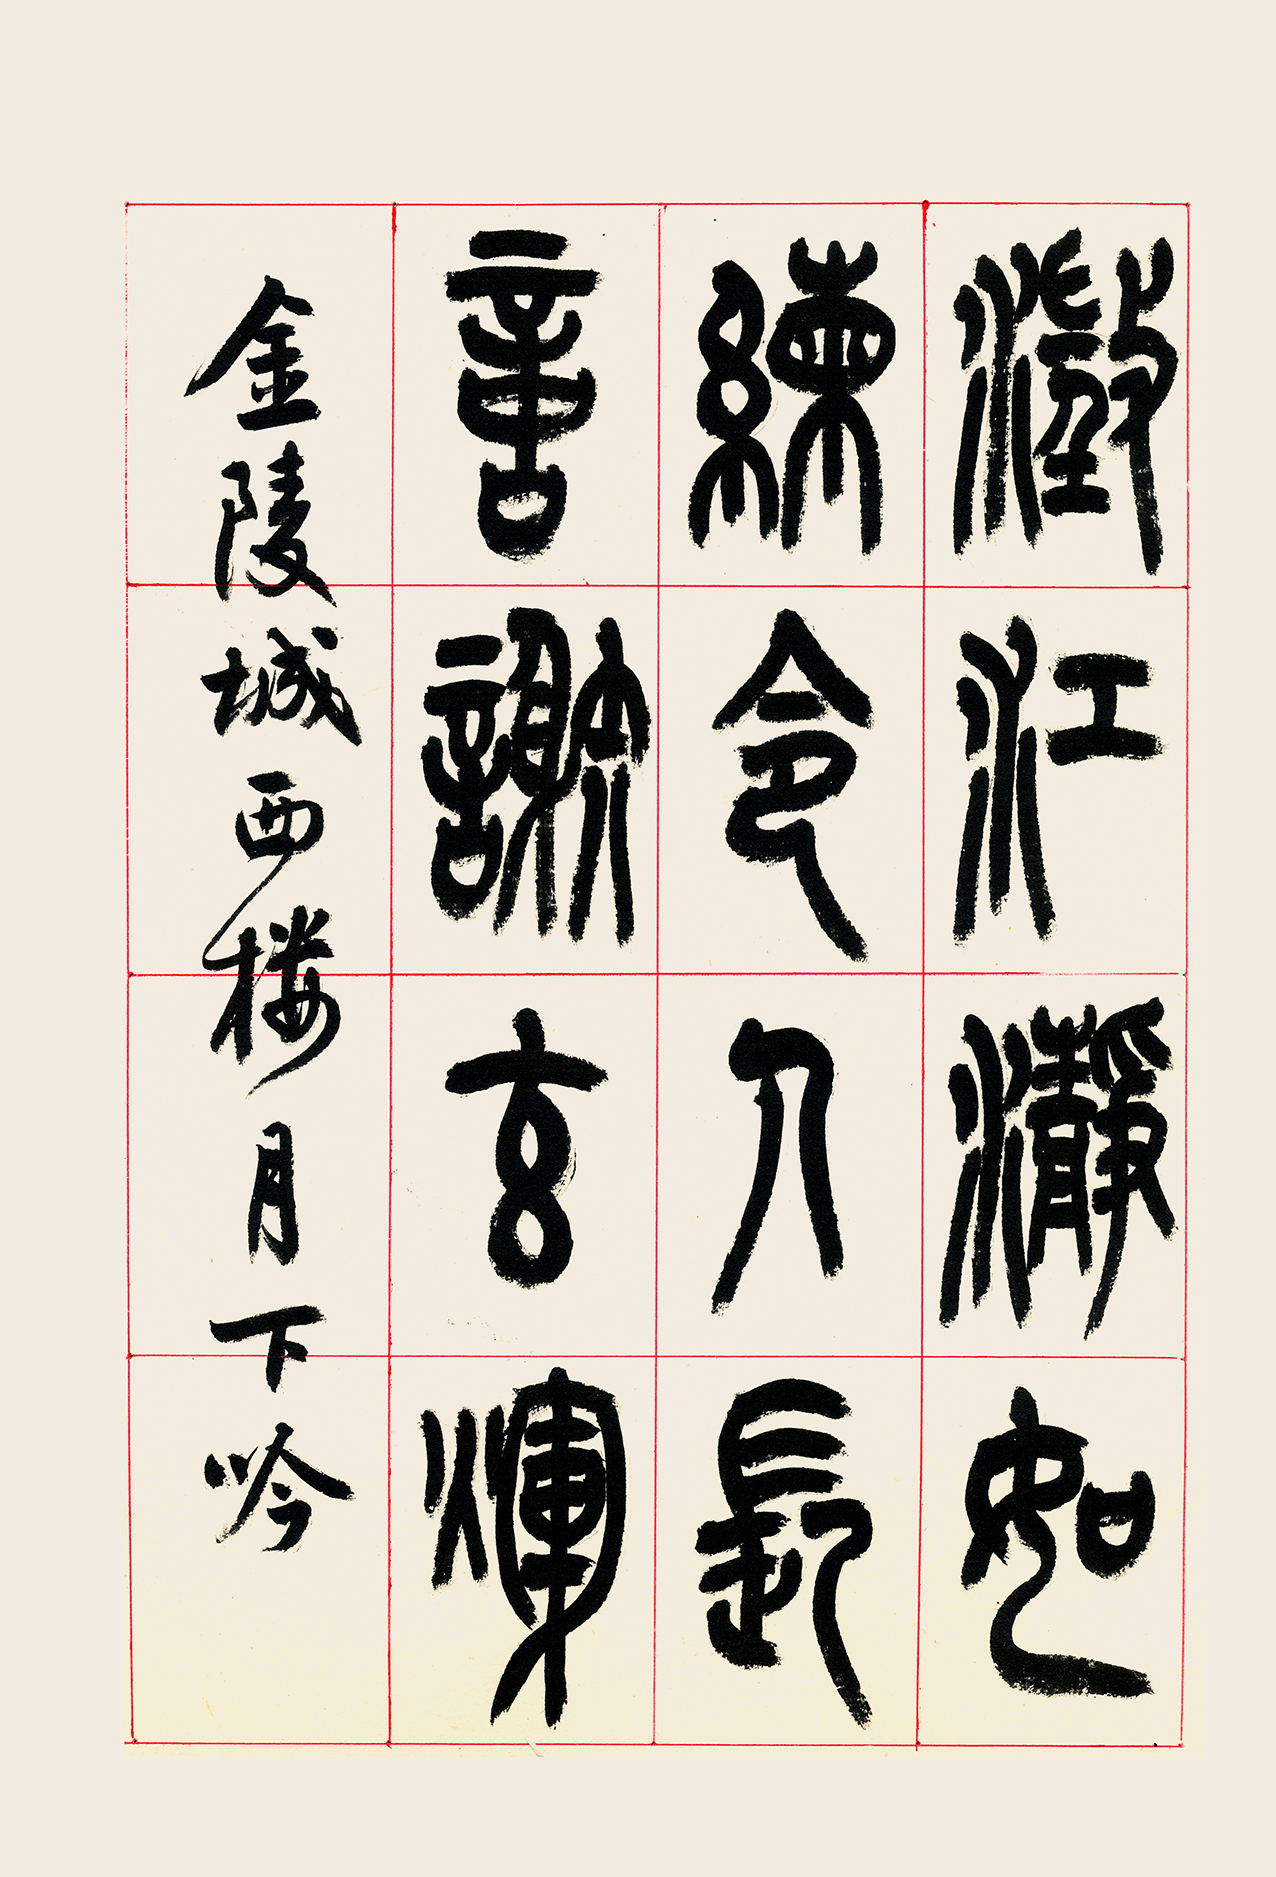 澂江瀞如
練令人長
憶謝玄煇
金陵城西樓月下吟